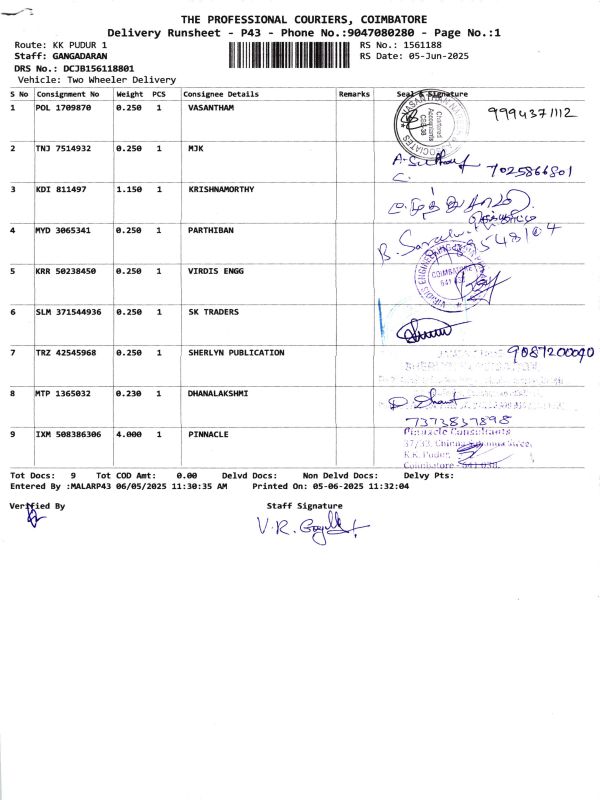 THE PROFESSIONAL COURIERS, COIMBATORE
Delivery Runsheet - P43 - Phone No.:9047080280 - Page No.:1
Route: KK PUDUR 1 RS No.: 1561188
Staff: GANGADARAN RS Date: 05-Jun-2025
DRS No.: DCJB156118801
Vehicle: Two Wheeler Delivery
S No Consignment No Weight PCS Consignee Details Remarks Seal & Signature
1 POL 1709870 0.250 1 VASANTHAM 9994371112
Chartered
Accountants
2 TNJ 7514932 0.250 1 MJK
7025866801
3 KDI 811497 1.150 1 KRISHNAMORTHY
4 MYD 3065341 0.250 1 PARTHIBAN
5 KRR 50238450 0.250 1 VIRDIS ENGG
COIMBATORE
6 SLM 371544936 0.250 1 SK TRADERS
7 TRZ 42545968 0.250 1 SHERLYN PUBLICATION 9087200090
8 MTP 1365032 0.230 1 DHANALAKSHMI
7373837898
9 IXM 508386306 4.000 1 PINNACLE
Pinnacle Consultants
37/33, Chinna
K.K. Pudur,
Coimbatore - 641 038.
Tot Docs: 9 Tot COD Amt: 0.00 Delvd Docs: Non Delvd Docs: Delvy Pts:
Entered By :MALARP43 06/05/2025 11:30:35 AM Printed On: 05-06-2025 11:32:04
Verified By Staff Signature
V.R.